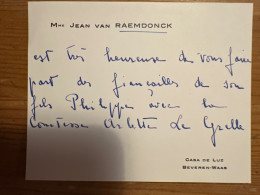 Mme Jean van RAEMDONCK
est très heureuse de vous faire
part des fiançailles de son
fils Philippe avec la
Comtesse Arlette Le Grelle
CASA DE LUC
BEVEREN-WAAS